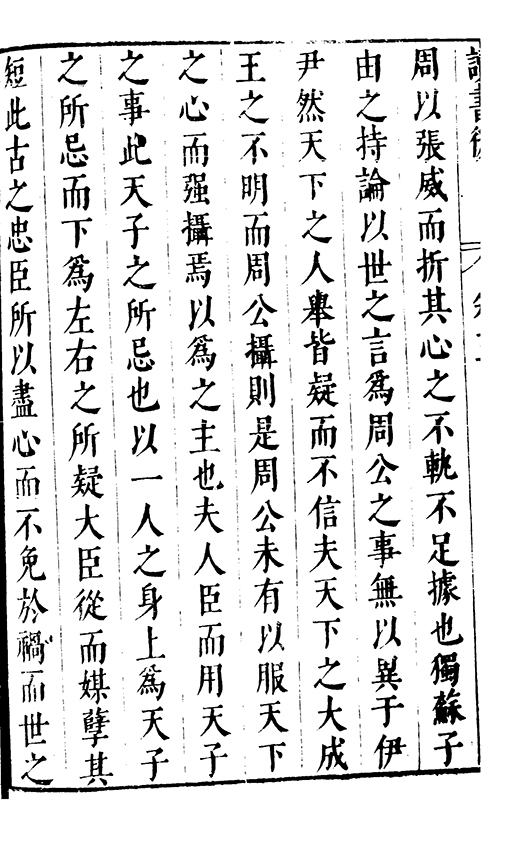 讀書後
周以張威而折其心之不軌不足據也獨蘇子
由之持論以世之言爲周公之事無以異于伊
尹然天下之人舉皆疑而不信夫天下之大成
王之不明而周公攝則是周公未有以服天下
之心而强攝焉以爲之主也夫人臣而用天子
之事此天子之所忌也以一人之身上爲天子
之所忌而下爲左右之所疑大臣從而媒孽其
短此古之忠臣所以盡心而不免於禍而世之